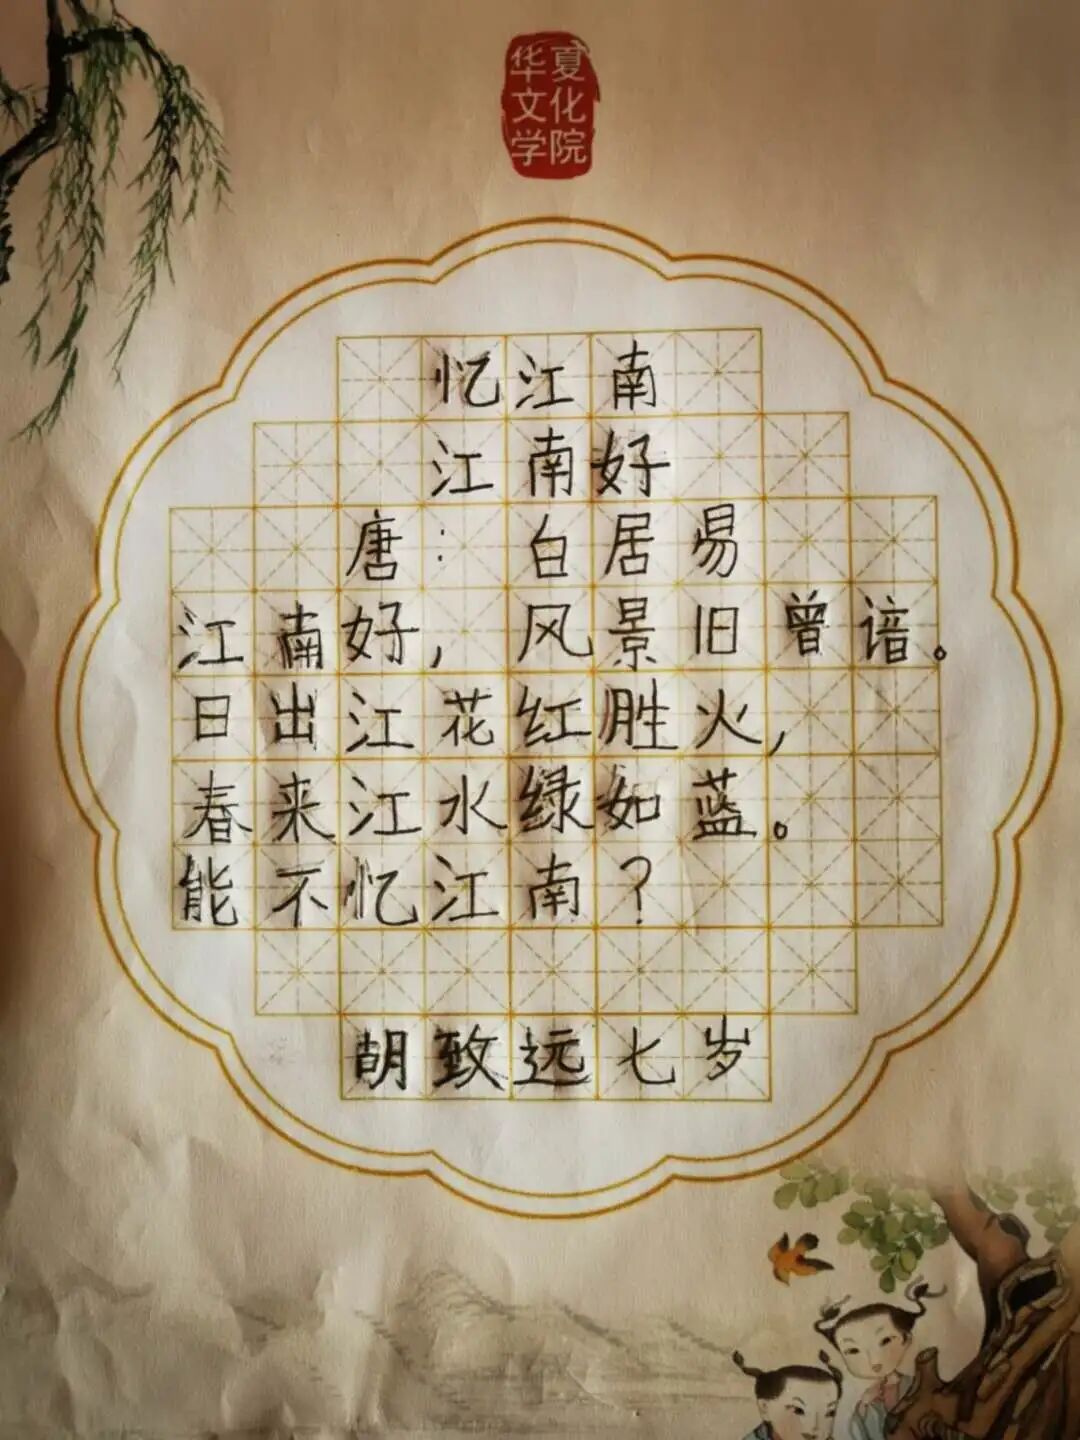 华夏
文化
学院
忆江南
江南好
唐：白居易
江南好，风景旧曾谙。
日出江花红胜火，
春来江水绿如蓝。
能不忆江南？
胡致远七岁